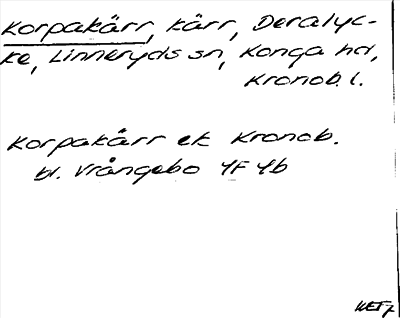 Korpakärr, kärr, Deralyc-
ke, Linneryds sn, Konga hd,
Kronob. l.
Korpakärr ek Kronob.
bl. Vrångebo 4F 4b